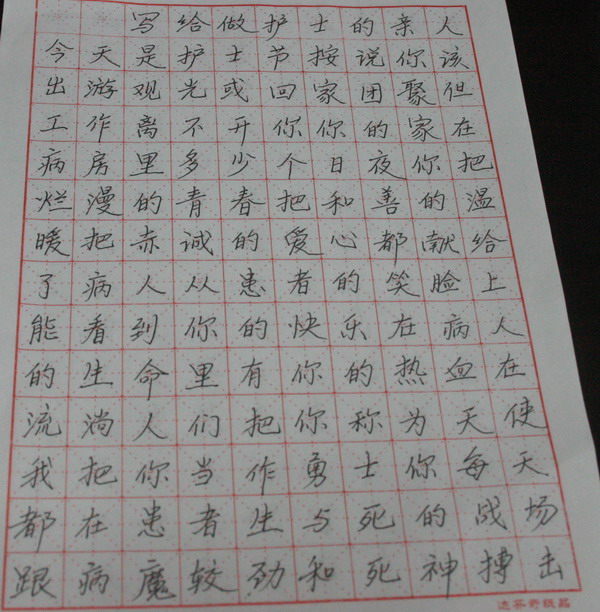 写给做护士的亲人
今天是护士节按说你该
出游观光或回家团聚但
工作离不开你你的家在
病房里多少个日夜你把
烂漫的青春把和善的温
暖把赤诚的爱心都献给
了病人从患者的笑脸上
能看到你的快乐在病人
的生命里有你的热血在
流淌人们把你称为天使
我把你当作勇士你每天
都在患者生与死的战场
跟病魔较劲和死神搏击